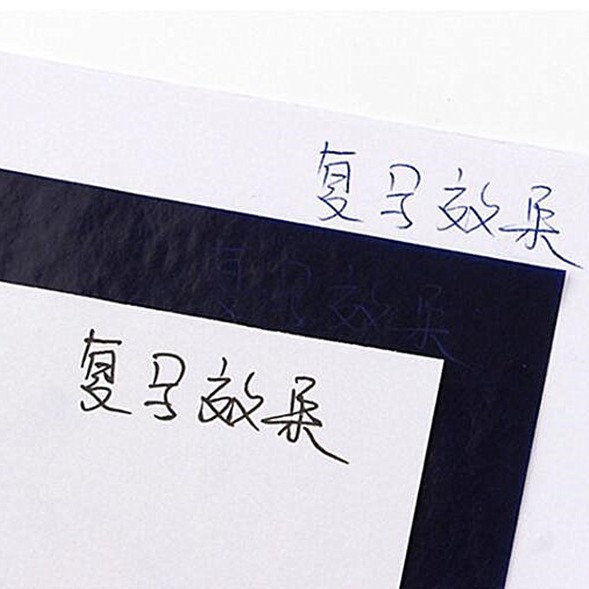 复写效果
复写效果
复写效果